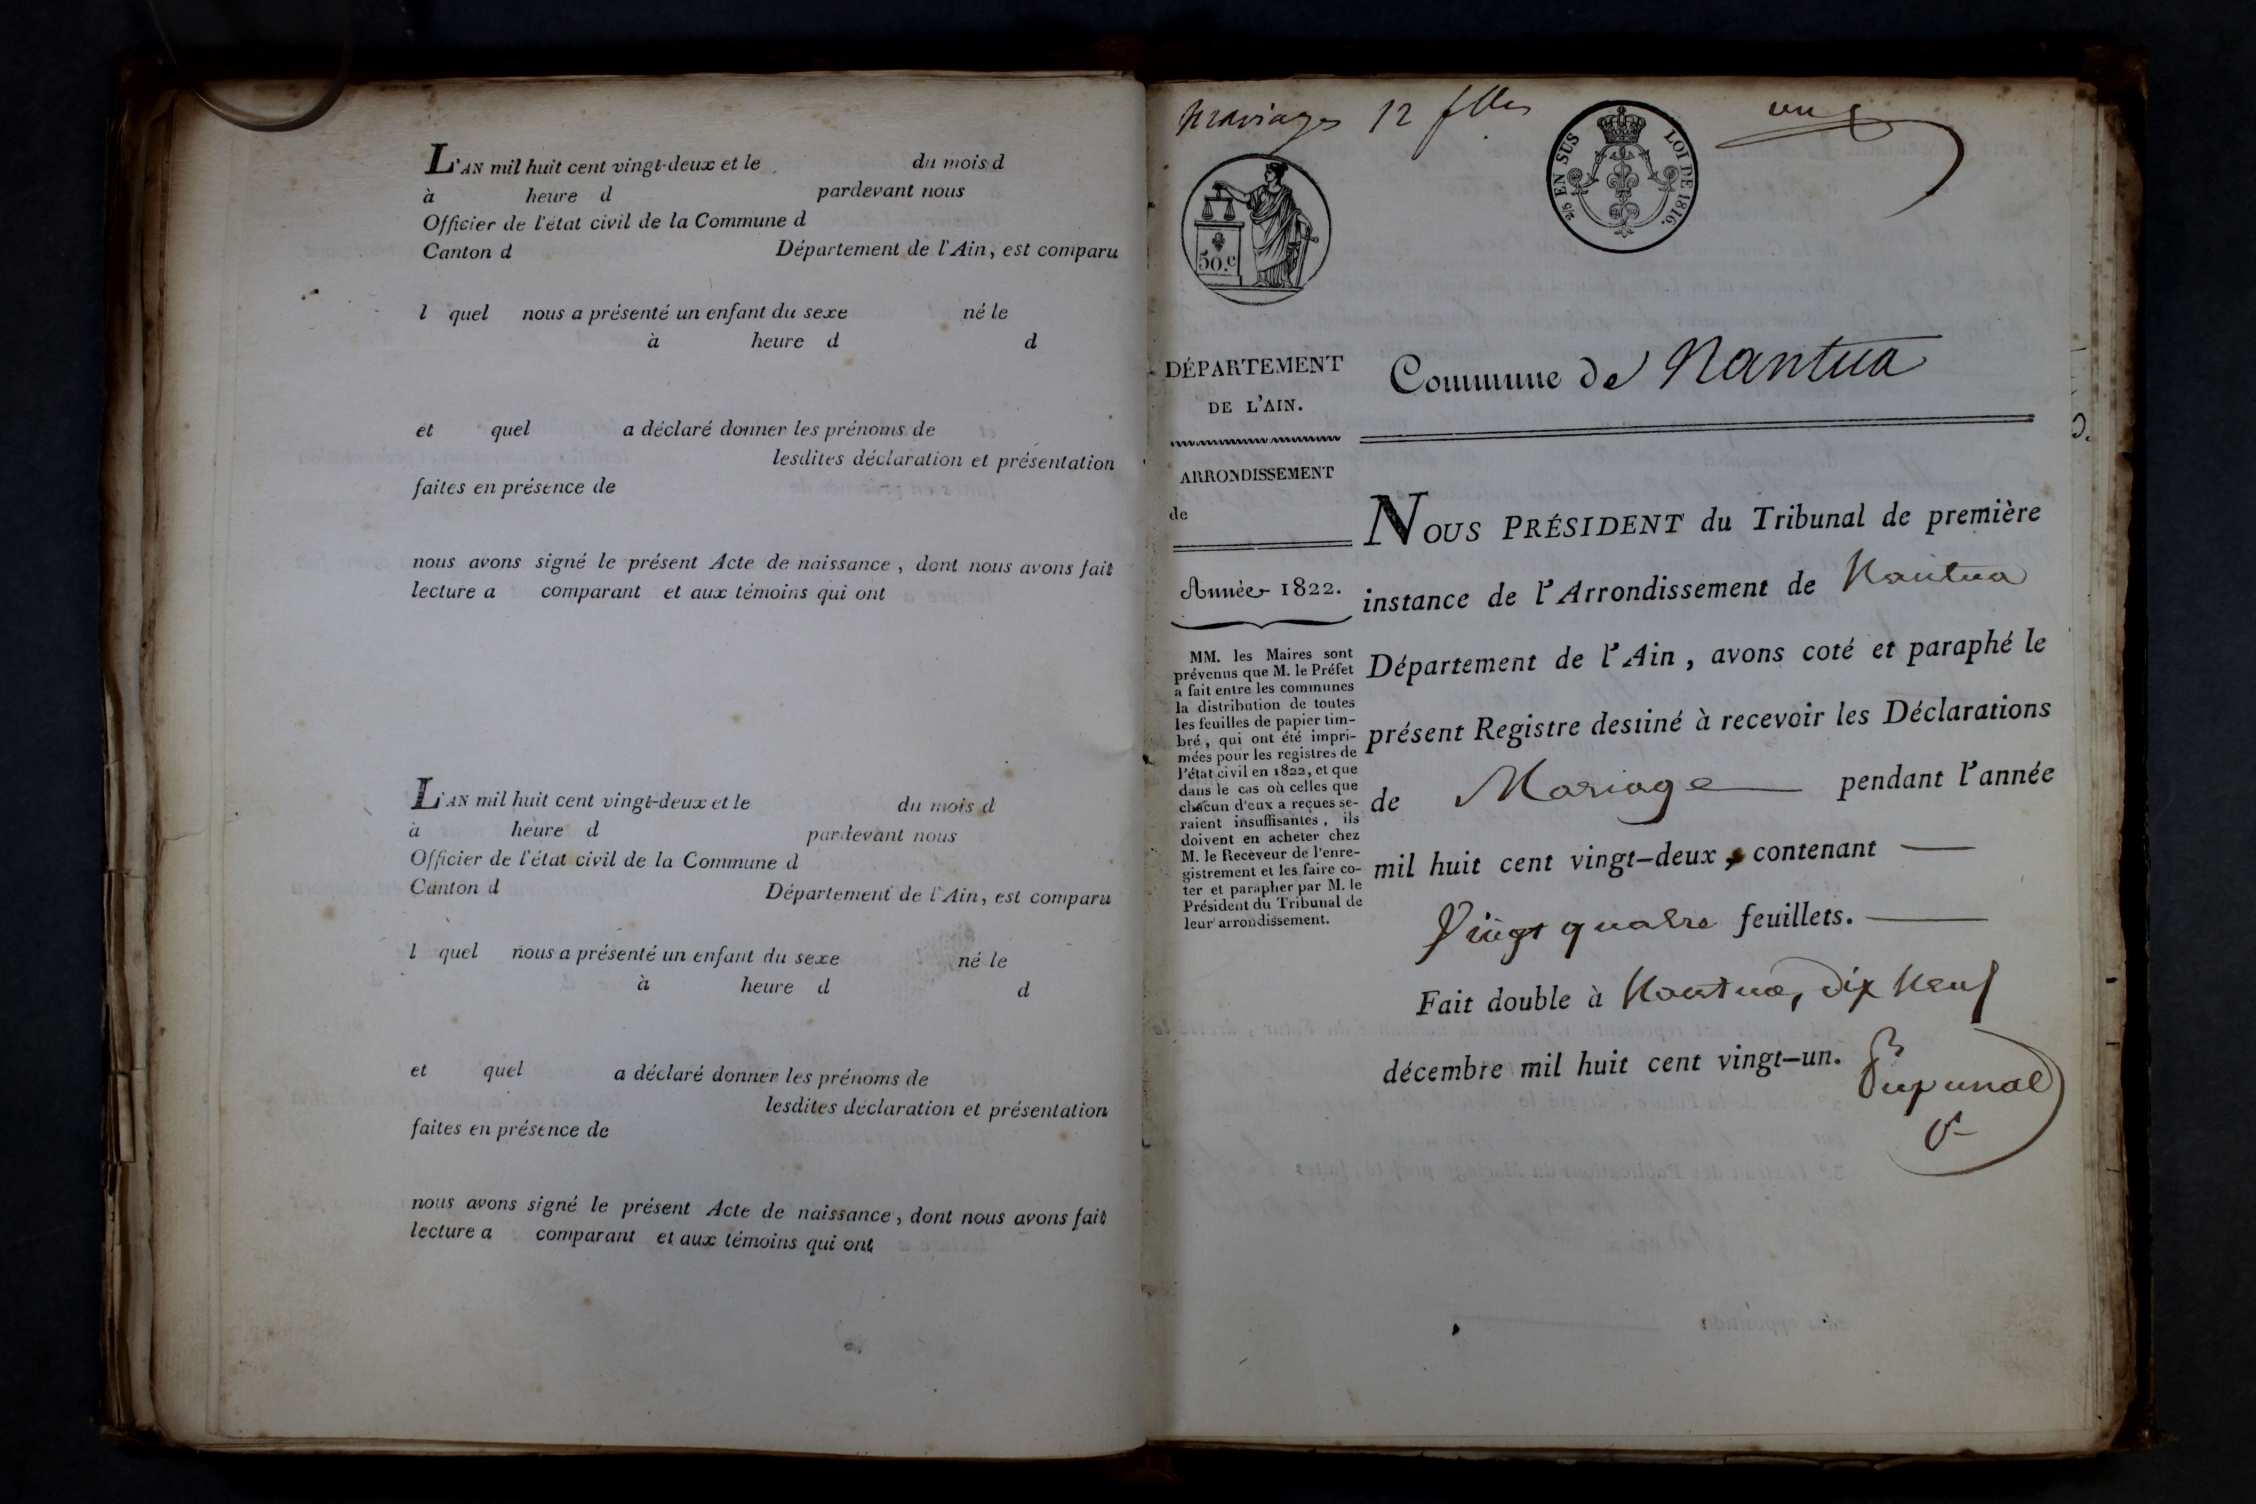 L'AN mil huit cent vingt-deux et le du mois d
à heure d pardevant nous
Officier de l'état civil de la Commune d
Canton d Département de l'Ain, est comparu
l quel nous a présenté un enfant du sexe né le
à heure d d
et quel a déclaré donner les prénoms de
lesdites déclaration et présentation
faites en présence de
nous avons signé le présent Acte de naissance, dont nous avons fait
lecture a comparant et aux témoins qui ont
L'AN mil huit cent vingt-deux et le du mois d
à heure d pardevant nous
Officier de l'état civil de la Commune d
Canton d Département de l'Ain, est comparu
l quel nous a présenté un enfant du sexe né le
à heure d d
et quel a déclaré donner les prénoms de
lesdites déclaration et présentation
faites en présence de
nous avons signé le présent Acte de naissance, dont nous avons fait
lecture a comparant et aux témoins qui ont
Mariages 12 flles
un
50.c
EN SUS LOI DE 1816.
DÉPARTEMENT
DE L'AIN.
ARRONDISSEMENT
de
Année 1822.
MM. les Maires sont
prévenus que M. le Préfet
a fait entre les communes
la distribution de toutes
les feuilles de papier tim-
bré, qui ont été impri-
mées pour les registres de
l'état civil en 1822, et que
dans le cas où celles que
chacun d'eux a reçues se-
raient insuffisantes, ils
doivent en acheter chez
M. le Receveur de l'enre-
gistrement et les faire co-
ter et parapher par M. le
Président du Tribunal de
leur arrondissement.
Commune de Nantua
NOUS PRÉSIDENT du Tribunal de première
instance de l'Arrondissement de Nantua
Département de l'Ain, avons coté et paraphé le
présent Registre destiné à recevoir les Déclarations
de Mariage pendant l'année
mil huit cent vingt-deux, contenant
Vingt quatre feuillets.
Fait double à Nantua, dix neuf
décembre mil huit cent vingt-un.